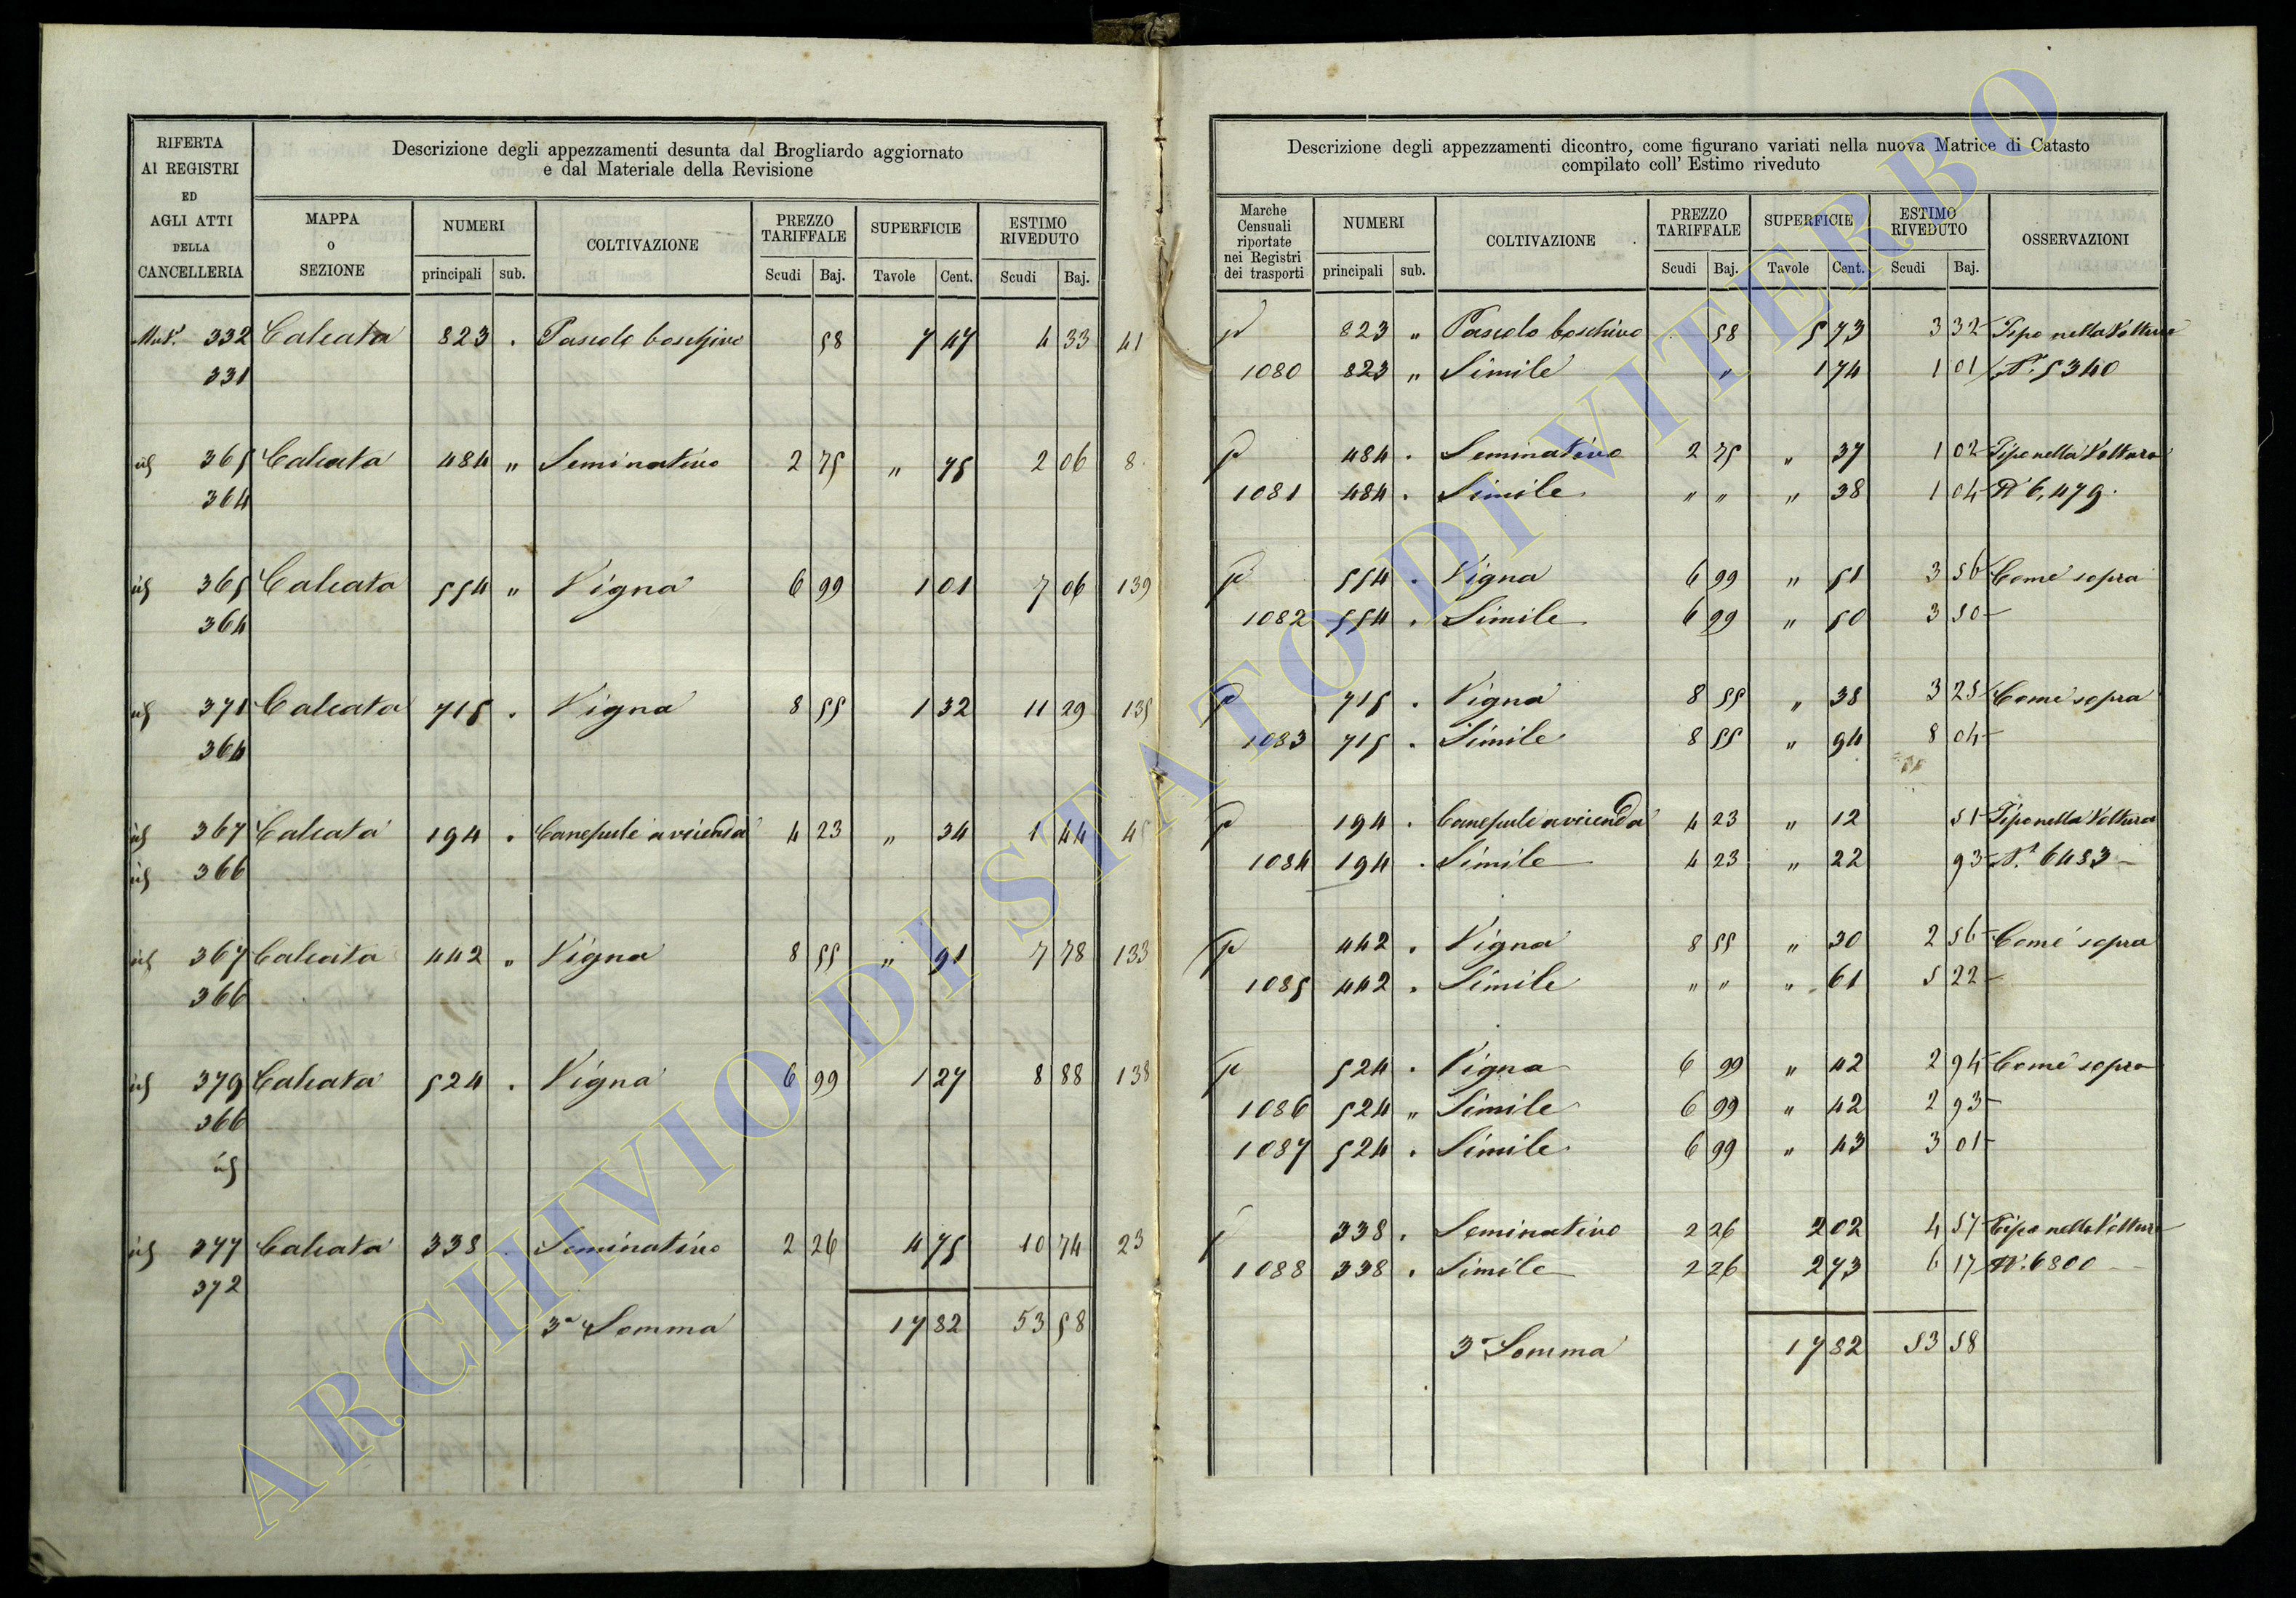 RIFERTA
AI REGISTRI
ED
AGLI ATTI
DELLA
CANCELLERIA
Descrizione degli appezzamenti desunta dal Brogliardo aggiornato
e dal Materiale della Revisione
MAPPA
O
SEZIONE
NUMERI
principali sub.
COLTIVAZIONE
PREZZO
TARIFFALE
Scudi Baj.
SUPERFICIE
Tavole Cent.
ESTIMO
RIVEDUTO
Scudi Baj.
332 Calcata 823 . Pascolo boschivo 58 7 47 4 33 41
331
id 365 Calcata 484 " Seminativo 2 75 " 75 2 06 8
364
id 365 Calcata 554 " Vigna 6 99 1 01 7 06 139
364
id 371 Calcata 715 . Vigna 8 55 1 32 11 29 135
364
id 367 Calcata 194 . Canepule a vicenda 4 23 " 34 1 44 45
id 366
id 367 Calcata 442 " Vigna 8 55 " 91 7 78 133
366
id 379 Calcata 524 . Vigna 6 99 1 27 8 88 138
366
id
id 377 Calcata 338 . Seminativo 2 26 4 75 10 74 23
372
3a Somma 17 82 53 58
Descrizione degli appezzamenti dicontro, come figurano variati nella nuova Matrice di Catasto
compilato coll' Estimo riveduto
Marche
Censuali
riportate
nei Registri
dei trasporti
NUMERI
principali sub.
COLTIVAZIONE
PREZZO
TARIFFALE
Scudi Baj.
SUPERFICIE
Tavole Cent.
ESTIMO
RIVEDUTO
Scudi Baj.
OSSERVAZIONI
p 823 " Pascolo boschivo 58 5 73 3 32 Tipo nella Voltura
1080 823 " Simile " 1 74 1 01 N. 5340
p 484 . Seminativo 2 75 " 37 1 02 Tipo nella Voltura
1081 484 . Simile " " " 38 1 04 N 6,479.
p 554 . Vigna 6 99 " 51 3 56 Come sopra
1082 554 . Simile 6 99 " 50 3 50
p 715 . Vigna 8 55 " 38 3 25 Come sopra
1083 715 . Simile 8 55 " 94 8 04
p 194 . Canepule a vicenda 4 23 " 12 51 Tipo nella Voltura
1084 194 . Simile 4 23 " 22 93 N. 6483
p 442 . Vigna 8 55 " 30 2 56 Come sopra
1085 442 . Simile " " " 61 5 22
p 524 . Vigna 6 99 " 42 2 94 Come sopra
1086 524 " Simile 6 99 " 42 2 93
1087 524 . Simile 6 99 " 43 3 01
p 338 . Seminativo 2 26 2 02 4 57 Tipo nella Voltura
1088 338 . Simile 2 26 2 73 6 17 N. 6800
3a Somma 17 82 53 58
ARCHIVIO DI STATO DI VITERBO